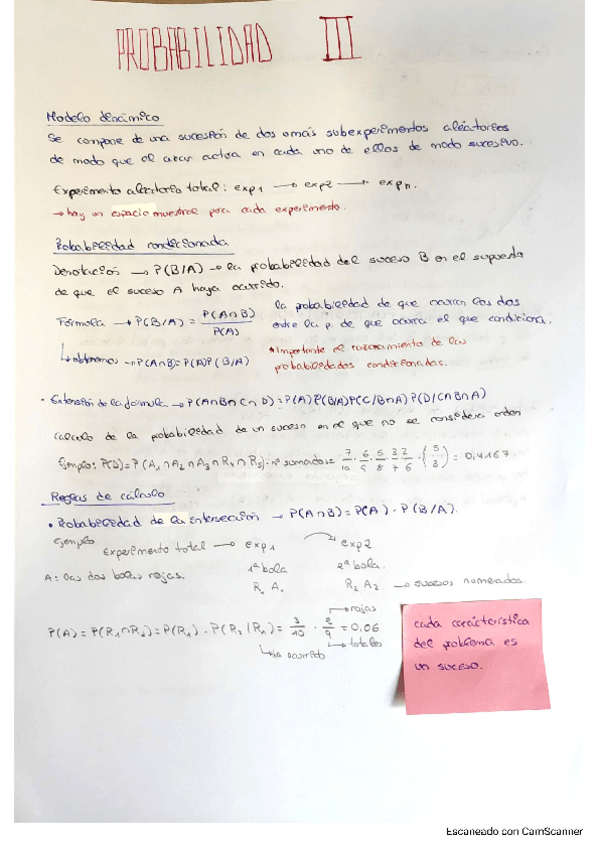 PROBABILIDAD III
Modelo dinámico
Se compone de una sucesión de dos o más subexperimentos aleatorios
de modo que el azar actua en cada uno de ellos de modo sucesivo.
Experimento aleatorio total: exp1 → exp2 → expn.
→ hay un espacio muestral para cada experimento.
Probabilidad condicionada
Denotación → P(B/A) → la probabilidad del suceso B en el supuesto
de que el suceso A haya ocurrido.
Fórmula → P(B/A) = P(A∩B) / P(A)
la probabilidad de que ocurran los dos
entre la p. de que ocurra el que condiciona.
↳ obtenemos → P(A∩B) = P(A)P(B/A)
*Importante el razonamiento de las
probabilidades condicionadas.
• Extensión de la fórmula → P(A∩B∩C∩D) = P(A)P(B/A)P(C/B∩A)P(D/C∩B∩A)
Cálculo de la probabilidad de un suceso en el que no se considera orden
Ejemplo: P(D) = P(A1∩A2∩A3∩R4∩R5) · nº sumandos = 7/10 · 6/9 · 5/8 · 3/7 · 2/6 · (5 3) = 0,4167
Reglas de cálculo
• Probabilidad de la intersección → P(A∩B) = P(A) · P(B/A).
Ejemplo
Experimento total → exp1 exp2
A: Las dos bolas rojas. 1ª bola 2ª bola.
R1 A1 R2 A2 → sucesos numerados
→ rojas
P(A) = P(R1∩R2) = P(R1) · P(R2/R1) = 3/10 · 2/9 = 0,06
↳ ya ocurrido ↳ totales
cada característica
del problema es
un suceso.
Escaneado con CamScanner